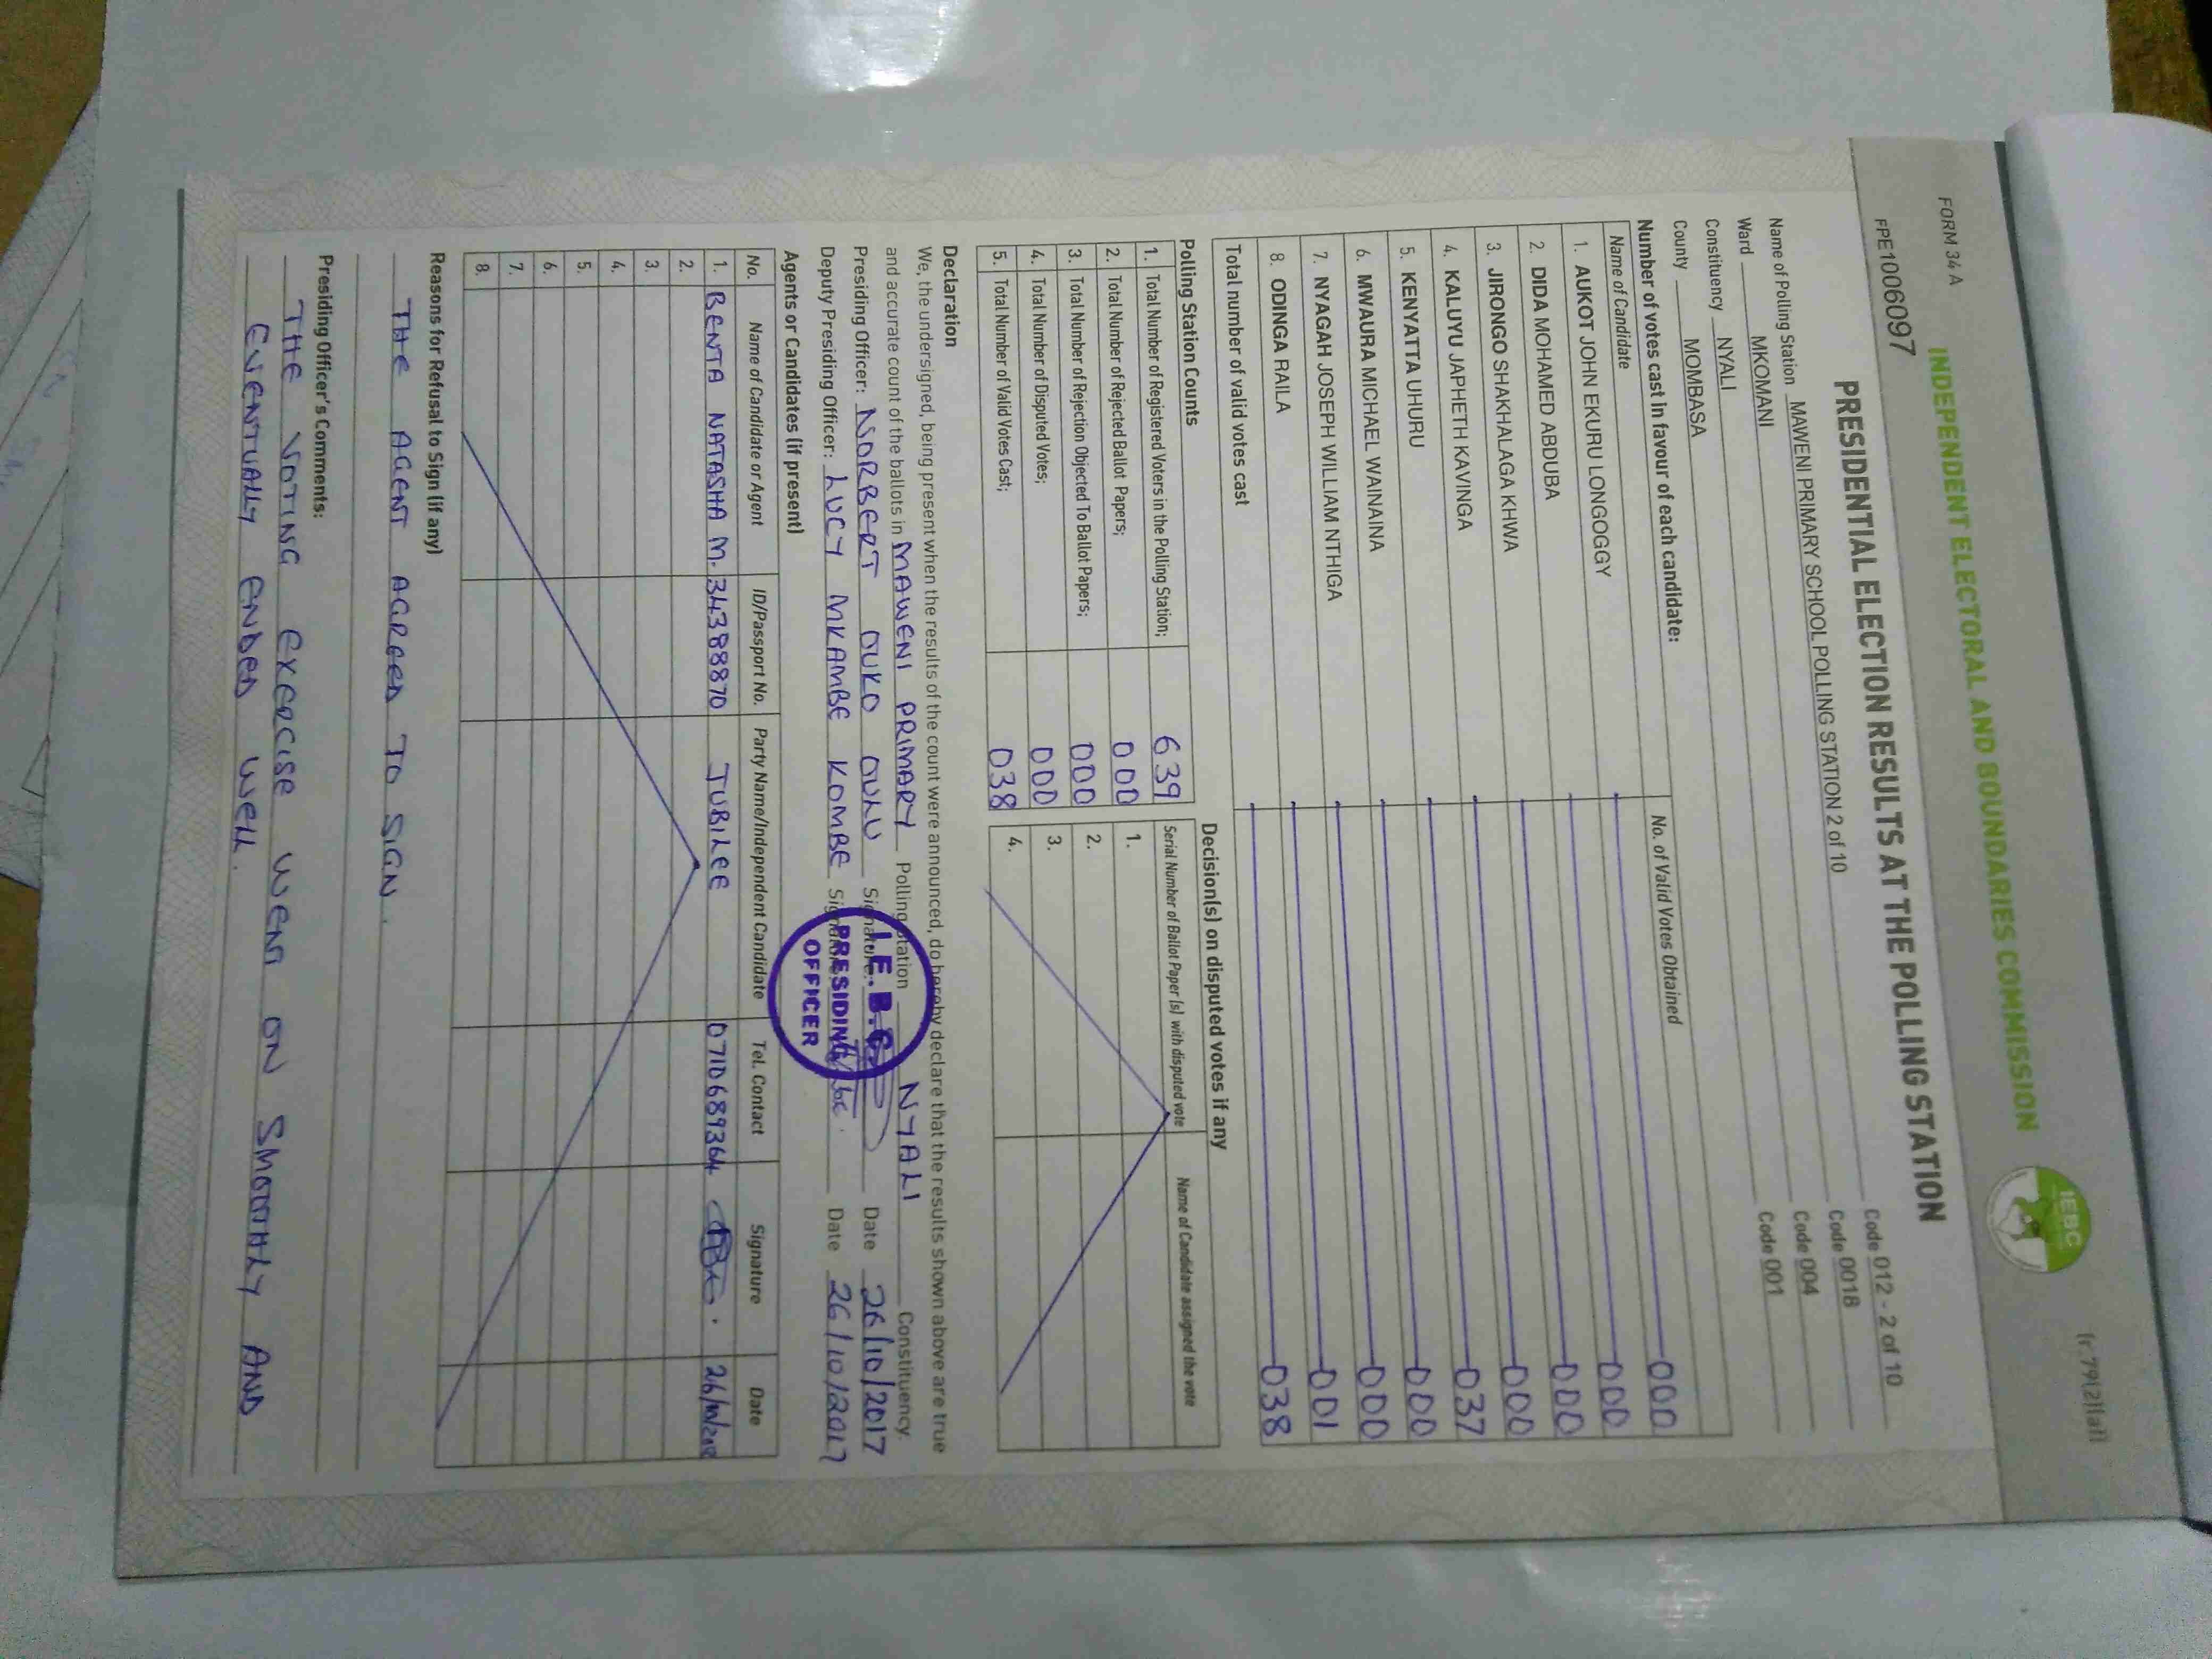 FORM 34 A
(r.79(2)(a))
INDEPENDENT ELECTORAL AND BOUNDARIES COMMISSION
IEBC
FPE1006097
PRESIDENTIAL ELECTION RESULTS AT THE POLLING STATION
Name of Polling Station MAWENI PRIMARY SCHOOL POLLING STATION 2 of 10 Code 012 - 2 of 10
Ward MKOMANI Code 0018
Constituency NYALI Code 004
County MOMBASA Code 001
Number of votes cast in favour of each candidate:
Name of Candidate No. of Valid Votes Obtained
1. AUKOT JOHN EKURU LONGOGGY 000
2. DIDA MOHAMED ABDUBA 000
3. JIRONGO SHAKHALAGA KHWA 000
4. KALUYU JAPHETH KAVINGA 000
5. KENYATTA UHURU 037
6. MWAURA MICHAEL WAINAINA 000
7. NYAGAH JOSEPH WILLIAM NTHIGA 000
8. ODINGA RAILA 001
Total number of valid votes cast 038
Polling Station Counts
1. Total Number of Registered Voters in the Polling Station; 639
2. Total Number of Rejected Ballot Papers; 000
3. Total Number of Rejection Objected To Ballot Papers; 000
4. Total Number of Disputed Votes; 000
5. Total Number of Valid Votes Cast; 038
Decision(s) on disputed votes if any
Serial Number of Ballot Paper (s) with disputed vote Name of Candidate assigned the vote
1.
2.
3.
4.
Declaration
We, the undersigned, being present when the results of the count were announced, do hereby declare that the results shown above are true
and accurate count of the ballots in MAWENI PRIMARY Polling Station NYALI Constituency.
Presiding Officer: NORRBERT OUKO OULU Signature: Date 26/10/2017
Deputy Presiding Officer: LUCY MKAMBE KOMBE Signature: Date 26/10/2017
I.E.B.C.
PRESIDING
OFFICER
Agents or Candidates (if present)
No. Name of Candidate or Agent ID/Passport No. Party Name/Independent Candidate Tel. Contact Signature Date
1. BENTA NATASHA M. 34388870 JUBILEE 0710689364
2.
3.
4.
5.
6.
7.
8.
Reasons for Refusal to Sign (if any)
THE AGENT AGREED TO SIGN.
Presiding Officer's Comments:
THE VOTING EXERCISE WENT ON SMOOTHLY AND
EVENTUALLY ENDED WELL.